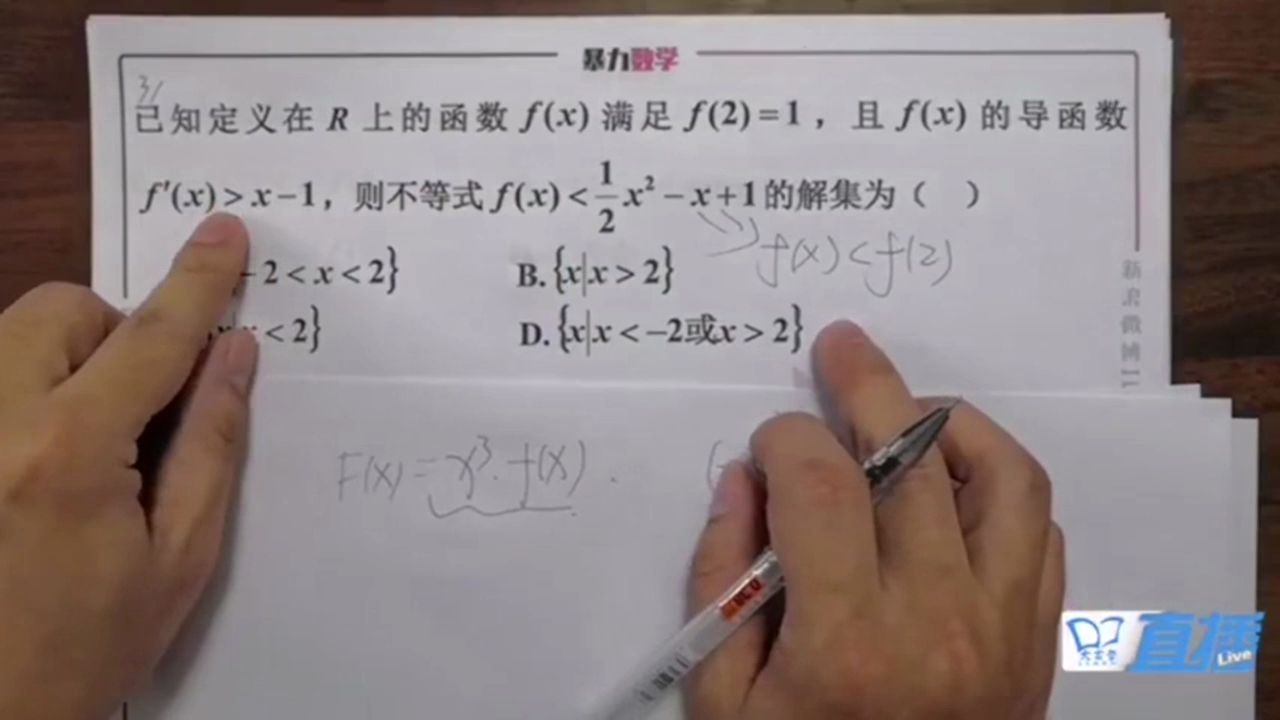 暴力数学
31
已知定义在 R 上的函数 f(x) 满足 f(2)=1，且 f(x) 的导函数
f′(x)>x−1，则不等式 f(x)<1/2x²−x+1的解集为（ ）
f(x)<f(2)
−2<x<2}
B.{x|x>2}
x<2}
D.{x|x<−2或x>2}
新
微
博
F(x)=x³·f(x).
直播
Live